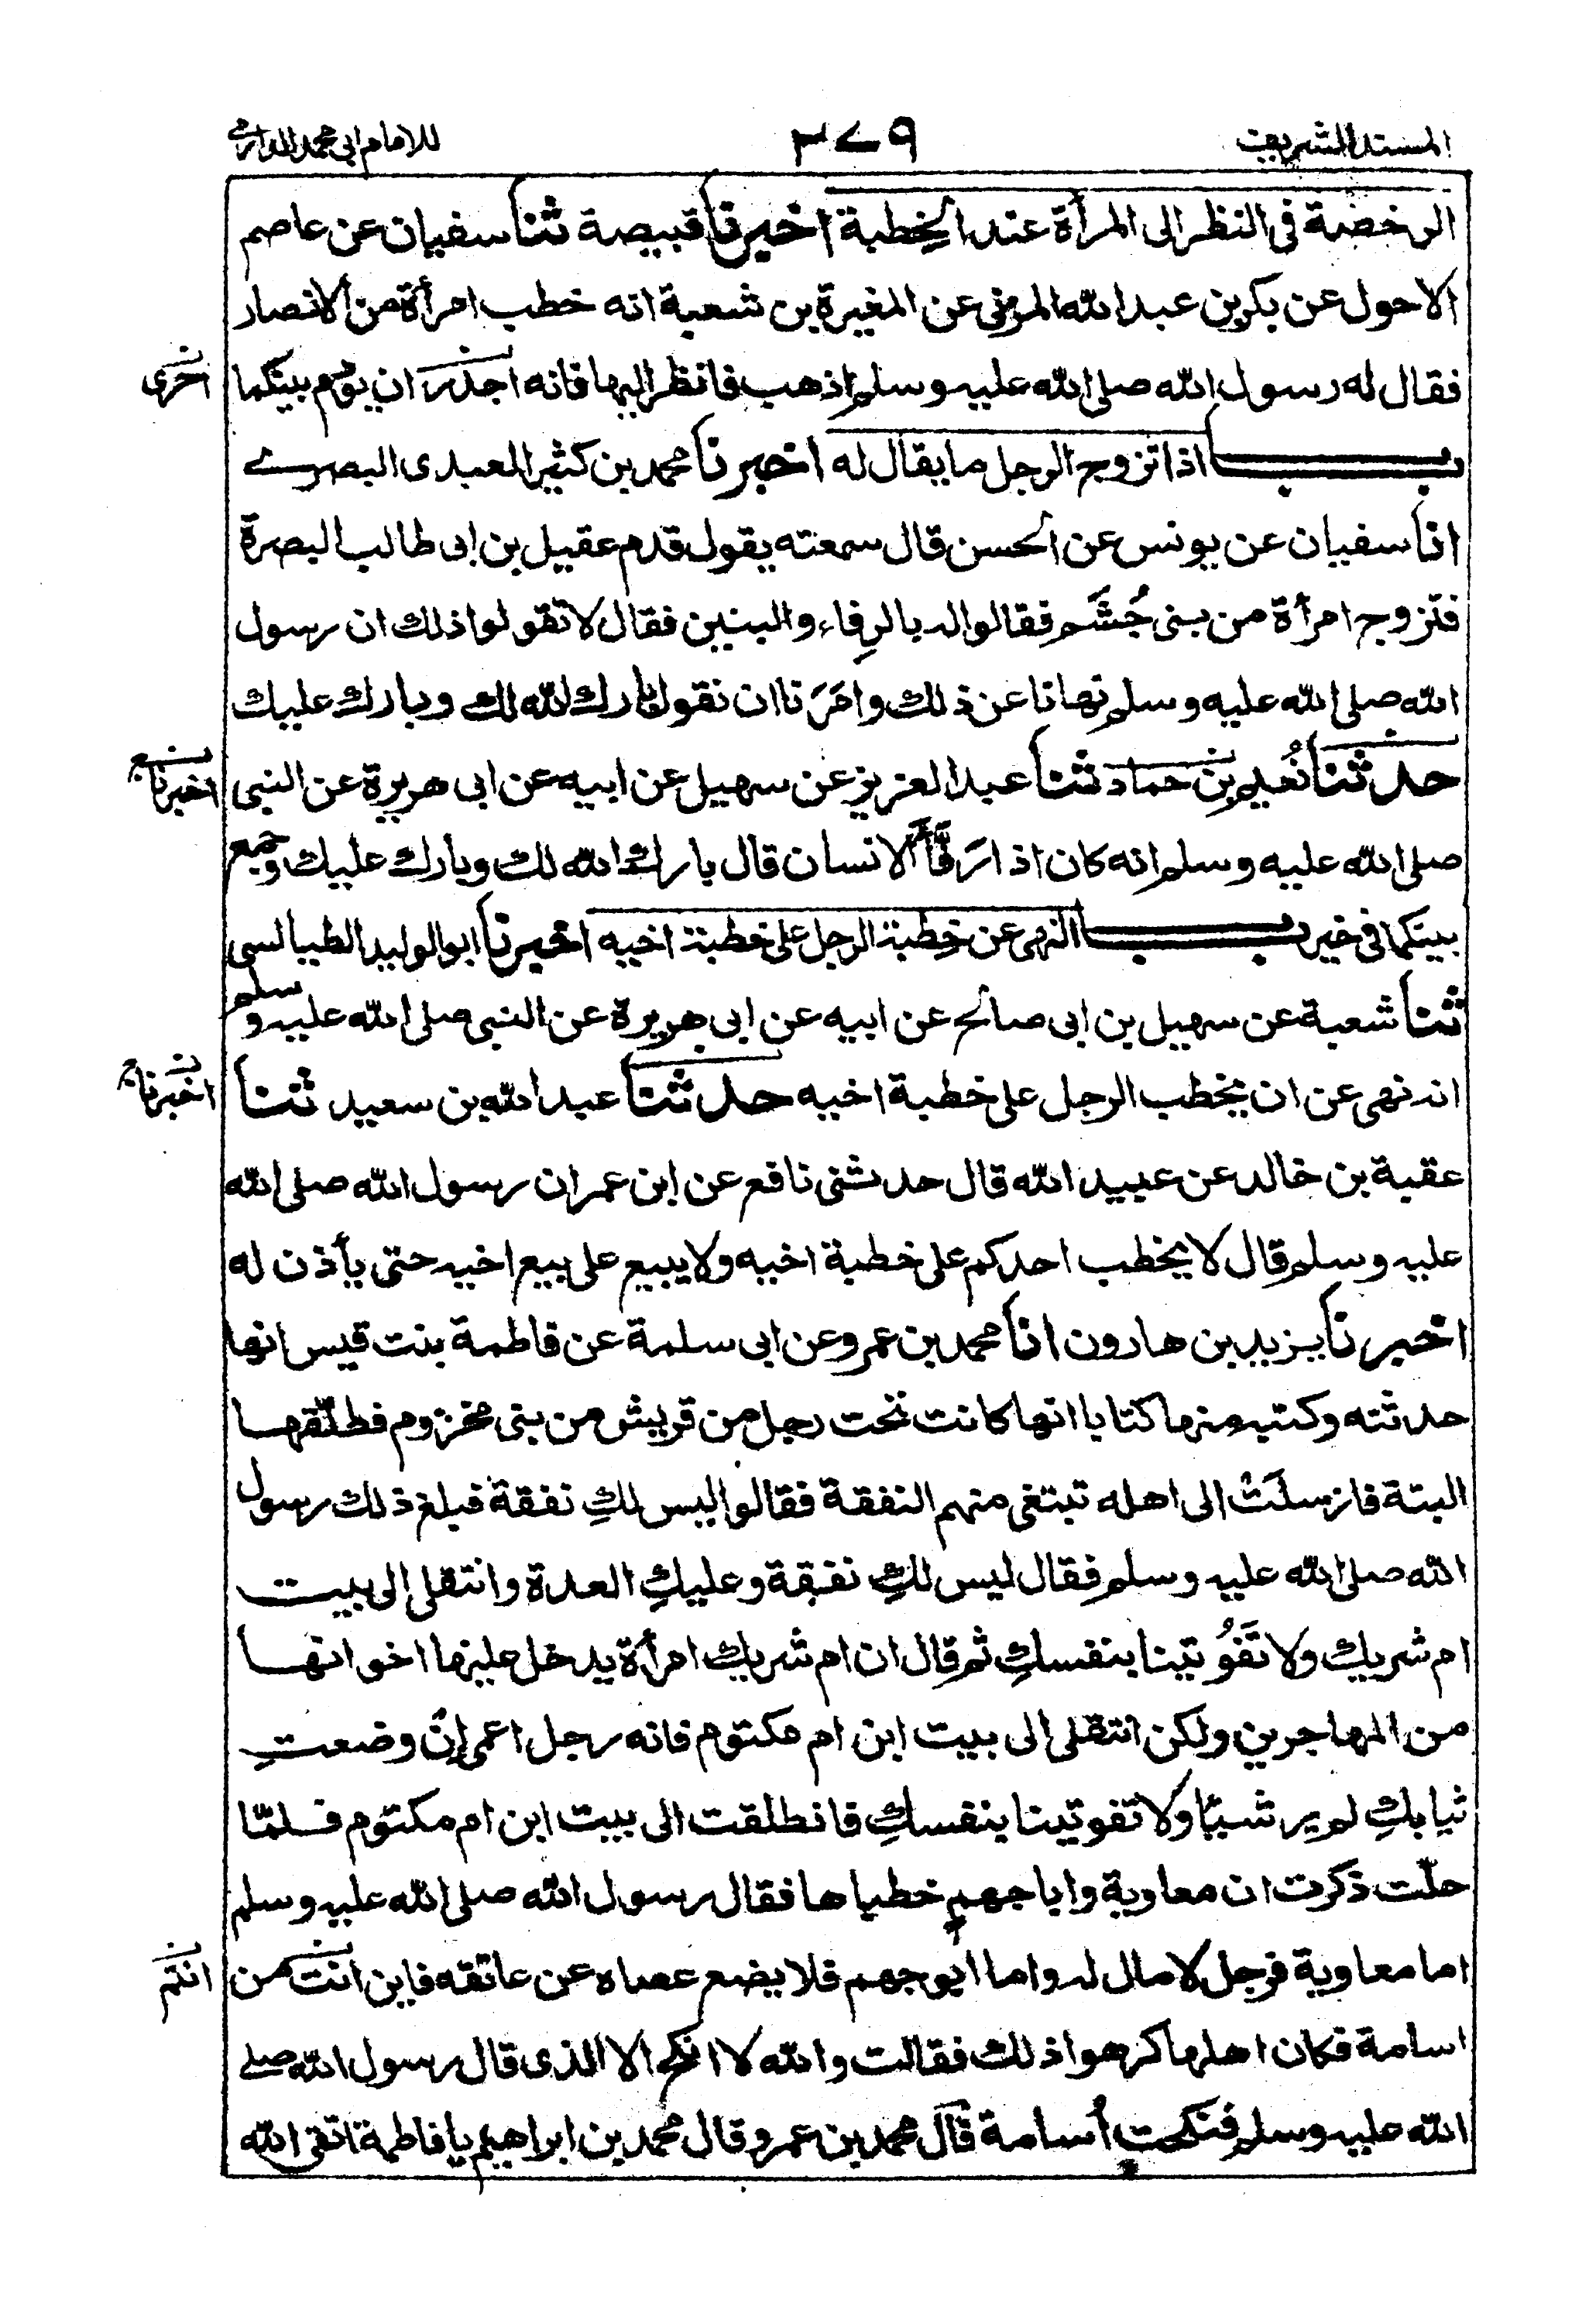 المسند الشريف ٢٧٩ للامام ابى محمد الدارمي
الرخصة فى النظر الى المرأة عند الخِطبة اخبرنا قبيصة ثنا سفيان عن عاصم
الاحول عن بكر بن عبد الله المزنى عن المغيرة بن شعبة انه خطب امرأة من الانصار
فقال له رسول الله صلى الله عليه وسلم اذهب فانظر اليها فانه اجذر ان يؤدم بينكما
اخرى
بـــــاب اذا تزوج الرجل ما يقال له اخبرنا محمد بن كثير العبدى البصرے
انا سفيان عن يونس عن الحسن قال سمعته يقول قدم عقيل بن ابى طالب البصرة
فتزوج امرأة من بنى جُشَم فقالوا له بالرِفاء والبنين فقال لا تقولوا ذلك ان رسول
الله صلى الله عليه وسلم نهانا عن ذلك وامَرَنا ان نقول بارك الله لك وبارك عليك
حدثنا نُعيم بن حماد ثنا عبد العزيز عن سهيل عن ابيه عن ابى هريرة عن النبى
اخبرنا
صلى الله عليه وسلم انه كان اذا رَفَّأَ الانسان قال بارك الله لك وبارك عليك وجمع
بينكما فى خير بـــــاب النهى عن خِطبة الرجل على خطبة اخيه اخبرنا ابو الوليد الطيالسى
ثنا شعبة عن سهيل بن ابى صالح عن ابيه عن ابى هريرة عن النبى صلى الله عليه وسلم
انه نهى عن ان يخطب الرجل على خطبة اخيه حدثنا عبد الله بن سعيد ثنا
اخبرنا
عقبة بن خالد عن عبيد الله قال حدثنى نافع عن ابن عمر ان رسول الله صلى الله
عليه وسلم قال لا يخطب احدكم على خطبة اخيه ولا يبيع على بيع اخيه حتى يأذن له
اخبرنا يزيد بن هارون انا محمد بن عمرو عن ابى سلمة عن فاطمة بنت قيس انها
حدثته وكتبه منها كتابا انها كانت تحت رجل من قريش من بنى مخزوم فطلّقها
البتة فارسلَتْ الى اهله تبتغى منهم النفقة فقالوا ليس لكِ نفقة فبلغ ذلك رسول
الله صلى الله عليه وسلم فقال ليس لكِ نفقة وعليكِ العدة وانتقلى الى بيت
ام شريك ولا تَفُوتينا بنفسكِ ثم قال ان ام شريك امرأة يدخل عليها اخوانها
من المهاجرين ولكن انتقلى الى بيت ابن ام مكتوم فانه رجل اعمى إنْ وضعتِ
ثيابكِ لم ير شيئا ولا تفوتينا بنفسكِ فانطلقت الى بيت ابن ام مكتوم فلمّا
حلّت ذكرت ان معاوية وابا جهمٍ خطباها فقال رسول الله صلى الله عليه وسلم
اما معاوية فرجل لا مال له واما ابو جهم فلا يضع عصاه عن عاتقه فاين انت من
انتم
اسامة فكان اهلها كرهوا ذلك فقالت والله لا انكح الا الذى قال رسول الله صلى
الله عليه وسلم فنكحت أسامة قال محمد بن عمرو قال محمد بن ابراهيم يا فاطمة اتقى الله